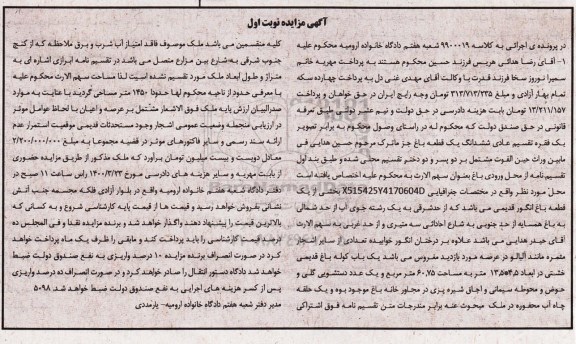 آگهی مزایده نوبت اول
در پرونده ی اجرائی به کلاسه ۹۹۰۰۰۱۹ شعبه هفتم دادگاه خانواده ارومیه محکوم علیه
۱- آقای رضا هدائی هریس فرزند حسین محکوم هستند به پرداخت مهریه خانم
سمیرا نوروز سخا فرزند قدرت با وکالت آقای مهدی غنی دل به پرداخت چهارده سکه
تمام بهار آزادی و مبلغ ۳۱۳/۷۱۳/۲۳۵ تومان وجه رایج ایران در حق خواهان و پرداخت
۱۳/۲۱۱/۱۵۷ تومان بابت هزینه دادرسی در حق دولت و نیم عشر دولتی طبق تعرفه
قانونی در حق صندق دولت که محکوم له در راستای وصول محکوم به برابر تصویر
یک فقره تقسیم عادی ششدانگ یک قطعه باغ جز ماترک مرحوم حسین هدایی فی
مابین وراث حین الفوت مشتمل بر دو پسر و دو دختر تقسیم محلی شده و طبق بند اول
تقسیم نامه از محل ورودی باغ بعنوان سهم الارث به محکوم علیه اختصاص یافته است
محل مورد نظر واقع در مختصات جغرافیایی X515425Y4170604D بخشی از یک
قطعه باغ انگور قدیمی می باشد که از حدشرقی به یک رشته جوی آب از حد شمالی
به باغ همسایه از حد جنوبی به شارع احداثی سه متیری و از حد غربی به سهم الارث
آقای حیدر هدایی می باشد علاوه بر درختان انگور خوابیده تعدادی از سایر اشجار
مثمره مانند آلبالو در عرصه مورد بازدید مغروس می باشد یک باب کوله باغ قدیمی
خشتی در ابعاد ۴/۵*۱۳/۵ متر به مساحت ۶۰.۷۵ متر مربع و یک عدد دستشویی گلی و
حوض و محوطه سیمانی و اجاق شیره پزی در مجاور خانه باغ موجود بوده و یک حلقه
چاه آب محفوره در ملک مبحوث عنه برابر مندرجات متن تقسیم نامه فوق اشتراکی
کلیه متقسمین می باشد ملک موصوف فاقد امتیاز آب شرب و برق ملاحظه که از کنج
جنوب شرقی به شارع بین مزارع متصل می باشد در تقسیم نامه ابرازی اشاره ای به
متراژ و طول ابعاد ملک مورد تقسیم نشده است لذا مساحت سهم الارث محکوم علیه
با معرفی حدود از ناحیه محکوم لها حدودا ۱۴۵۰ متر مساحی گردید با عنایت به موارد
صدرالبیان ارزش پایه ملک فوق الاشعار مشتمل بر عرصه و اعیان با لحاظ عوامل موثر
در ارزیابی منجمله وضعیت عمومی اشجار وجود مستحدثات قدیمی موقعیت استمرار عدم
ارائه سند رسمی و سایر فاکتورهای موثر در قضیه مجموعا به مبلغ ۲/۲۰۰/۰۰۰/۰۰۰
معادل دویست و بیست میلیون تومان برآورد که ملک مذکور از طریق مزایده حضوری
از بابت مهریه و سایر هزینه های دادرسی مورخ ۱۴۰۰/۳/۲۳ راس ساعت ۱۱ صبح در
دفتر دادگاه شعبه هفتم خانواده ارومیه واقع در بلوار آزادی فلکه مجسمه جنب آتش
نشانی بفروش خواهد رسید و قیمت ها از قیمت پایه کارشناسی شروع و به کسانی که
بالاترین قیمت را پیشنهاد دهند واگذار خواهد شد و برنده مزایده نقدا و فی المجلس ده
درصد قیمت کارشناسی را باید پرداخت کند و مابقی را ظرف یک ماه پرداخت خواهد
کرد در صورت انصراف برنده مزایده ۱۰ درصد واریزی به نفع صندوق دولت ضبط
خواهد شد دادگاه دستور انتقال را صادر خواهد کرد و در صورت انصراف ده درصد واریزی
پس از کسر هزینه های اجرایی به نفع صندوق دولت ضبط خواهد شد ۵۰۹۸
مدیر دفتر شعبه هفتم دادگاه خانواده ارومیه- یارمددی